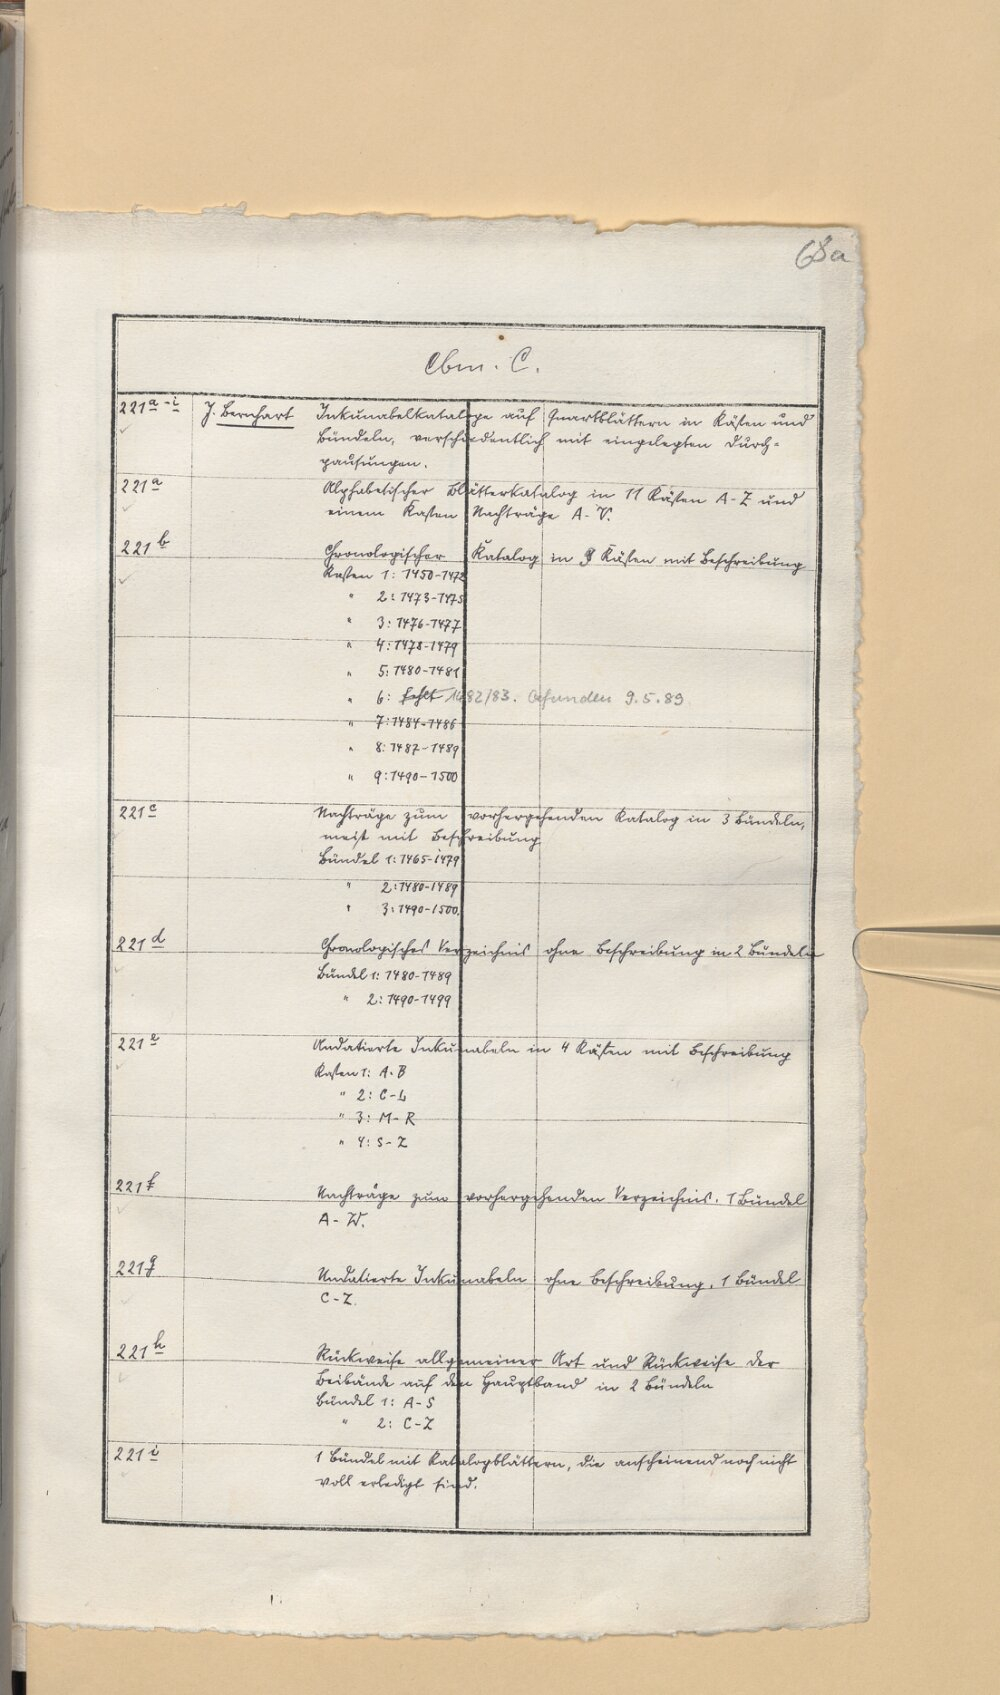 68a
Cbm. C.
221 a-i J. Bernhart Inkunabelkataloge auf Quartblättern in Kästen und
Bündeln, verschiedentlich mit eingelegten Durch-
pausungen.
221 a Alphabetischer Blätterkatalog in 11 Kästen A-Z und
einem Kasten Nachträge A-V.
221 b Chronologischer Katalog in 9 Kästen mit Beschreibung
Kasten 1: 1450-1472
" 2: 1473-1475
" 3: 1476-1477
" 4: 1478-1479
" 5: 1480-1481
" 6: fehlt 1482/83. Gefunden 9.5.89
" 7: 1484-1486
" 8: 1487-1489
" 9: 1490-1500
221 c Nachträge zum vorhergehenden Katalog in 3 Bündeln,
meist mit Beschreibung
Bündel 1: 1465-1479
" 2: 1480-1489
" 3: 1490-1500.
221 d Chronologisches Verzeichnis ohne Beschreibung in 2 Bündeln
Bündel 1: 1480-1489
" 2: 1490-1499
221 e Undatierte Inkunabeln in 4 Kästen mit Beschreibung
Kasten 1: A-B
" 2: C-L
" 3: M-R
" 4: S-Z
221 f Nachträge zum vorhergehenden Verzeichnis. 1 Bündel
A-W.
221 g Undatierte Inkunabeln ohne Beschreibung. 1 Bündel
C-Z.
221 h Rückweise allgemeiner Art und Rückweise der
Beibände auf den Hauptband in 2 Bündeln
Bündel 1: A-S
" 2: C-Z
221 i 1 Bündel mit Katalogblättern, die anscheinend noch nicht
voll erledigt sind.